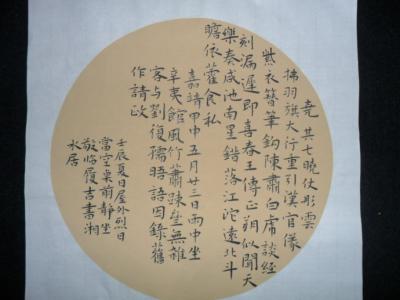 堯其七曉仗彤雲
拂羽旗大行重引漢官儀
紫衣簪筆鈎陳肅白虎談經
刻漏遲即喜春王傳正朔似聞天
樂奏咸池南星錯落江沱遠北斗
瞻依藿食私
嘉靖甲申五月廿三日雨中坐
辛夷館風竹蕭踈坐無雜
客与劉復孺晤語因錄舊
作請政
壬辰夏日屋外烈日
當空桌前靜坐
敬臨履吉書湘
水居